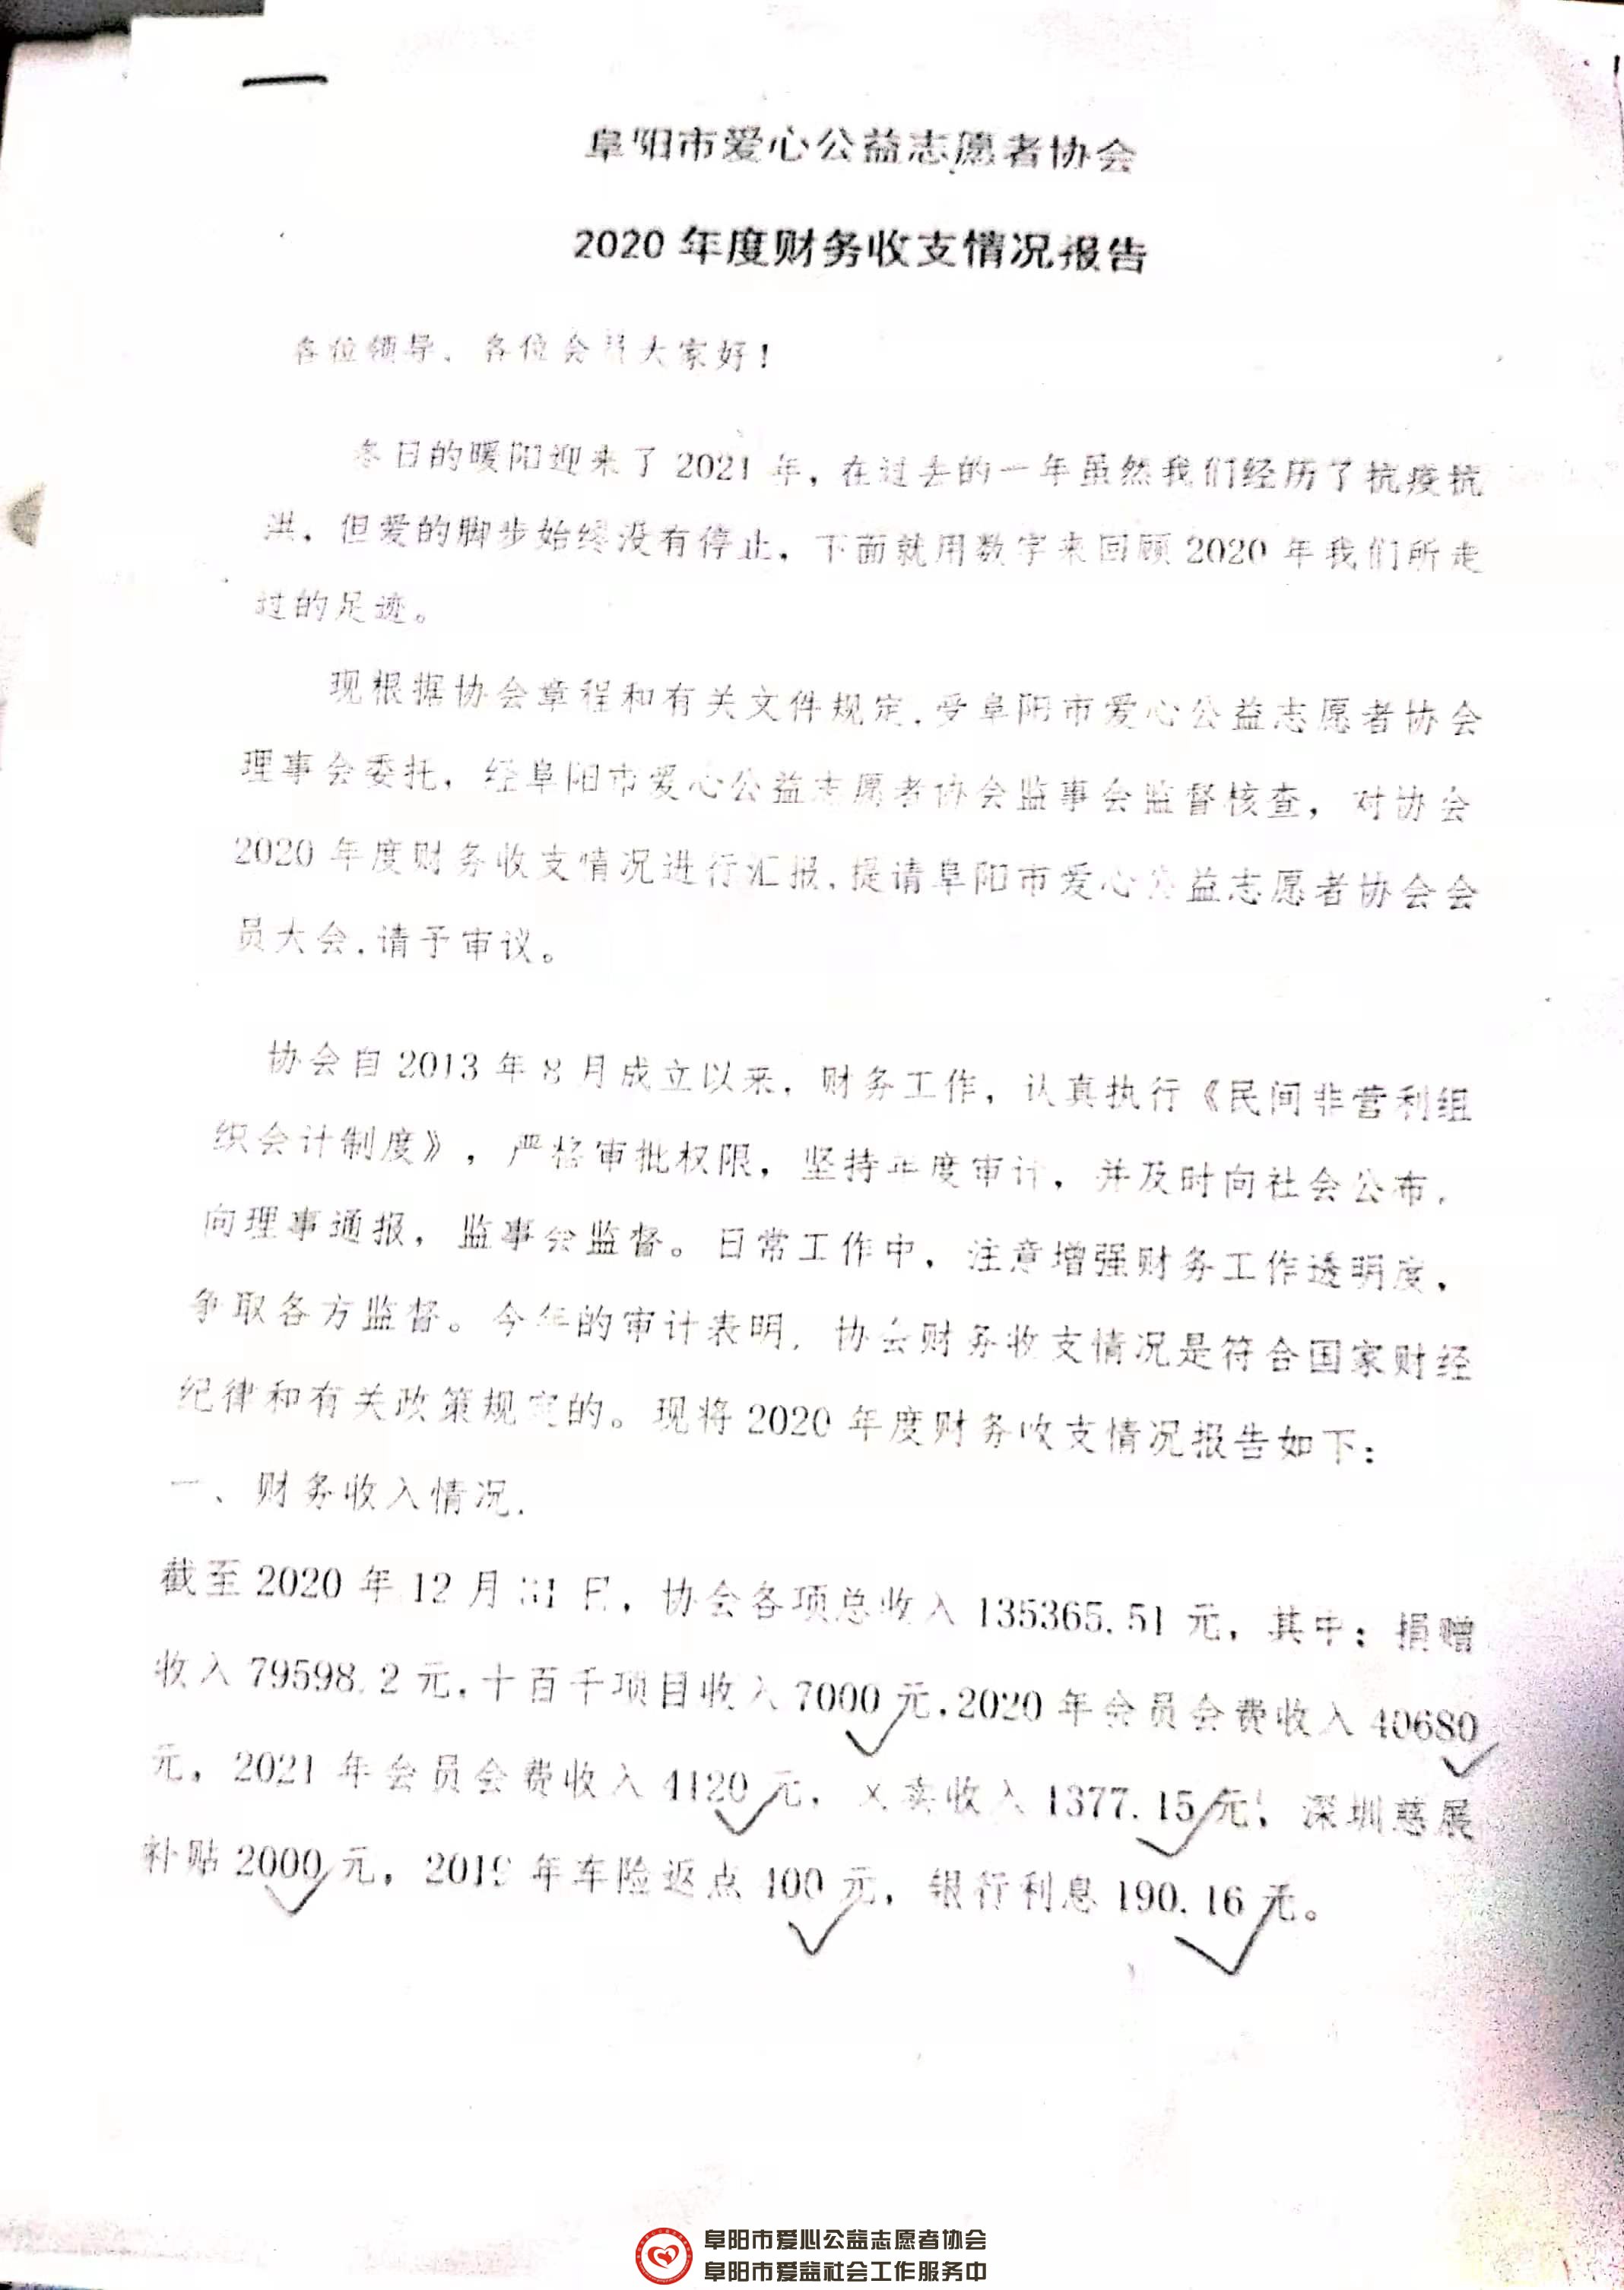 阜阳市爱心公益志愿者协会
2020 年度财务收支情况报告
各位领导、各位会员大家好！
冬日的暖阳迎来了 2021 年，在过去的一年虽然我们经历了抗疫抗
洪，但爱的脚步始终没有停止，下面就用数字来回顾 2020 年我们所走
过的足迹。
现根据协会章程和有关文件规定,受阜阳市爱心公益志愿者协会
理事会委托，经阜阳市爱心公益志愿者协会监事会监督核查，对协会
2020 年度财务收支情况进行汇报,提请阜阳市爱心公益志愿者协会会
员大会,请予审议。
协会自 2013 年 8 月成立以来，财务工作，认真执行《民间非营利组
织会计制度》，严格审批权限，坚持年度审计，并及时向社会公布，
向理事通报，监事会监督。日常工作中，注意增强财务工作透明度，
争取各方监督。今年的审计表明，协会财务收支情况是符合国家财经
纪律和有关政策规定的。现将 2020 年度财务收支情况报告如下：
一、财务收入情况.
截至 2020 年 12 月 31 日，协会各项总收入 135365.51 元，其中：捐赠
收入 79598.2 元,十百千项目收入 7000 元,2020 年会员会费收入 40680
元，2021 年会员会费收入 4120 元，义卖收入 1377.15 元，深圳慈展
补贴 2000 元，2019 年车险返点 400 元，银行利息 190.16 元。
阜阳市爱心公益志愿者协会
阜阳市爱益社会工作服务中